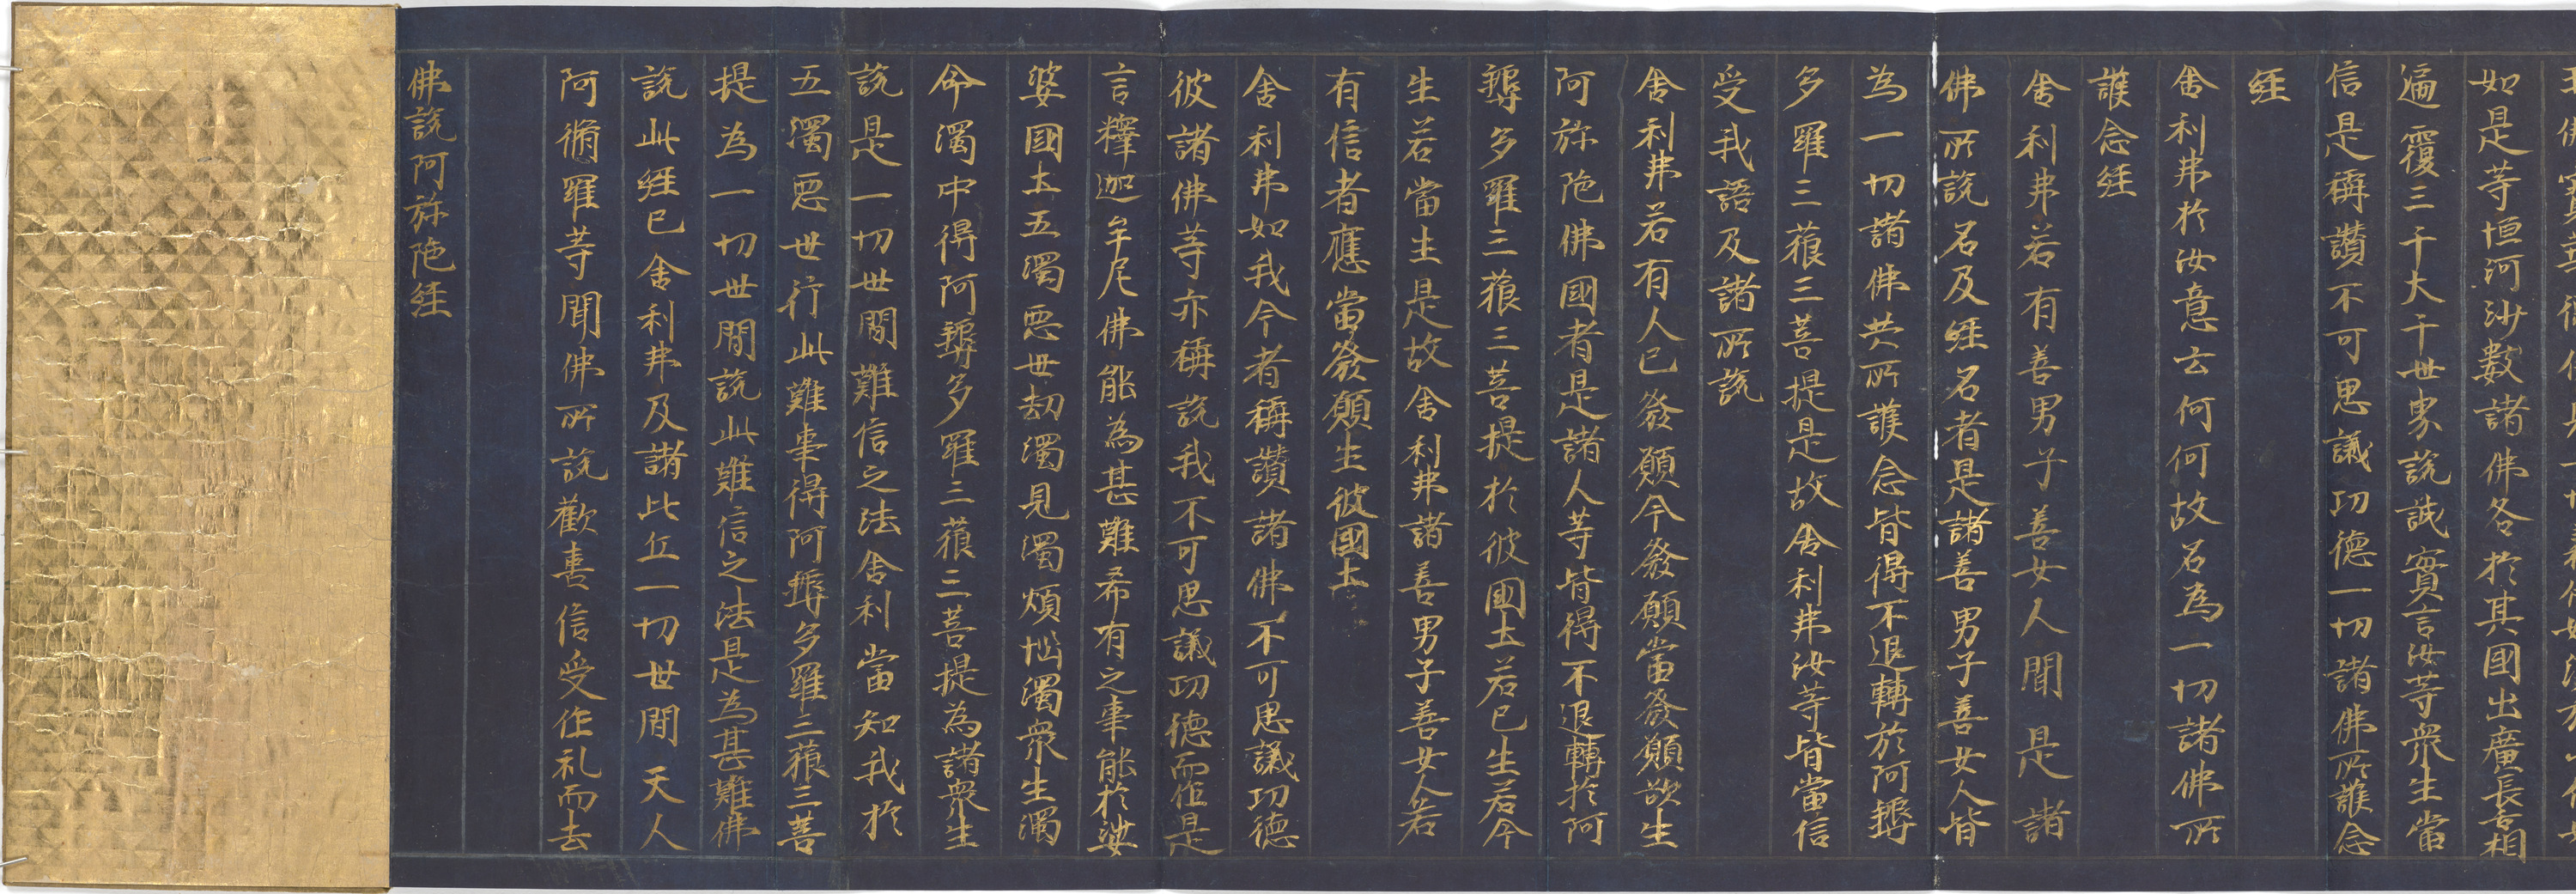 如是等恒河沙數諸佛各於其國出廣長舌相
遍覆三千大千世界說誠實言汝等衆生當
信是稱讚不可思議功德一切諸佛所護念
經
舍利弗於汝意云何何故名為一切諸佛所
護念經
舍利弗若有善男子善女人聞是諸
佛所說名及經名者是諸善男子善女人皆
為一切諸佛共所護念皆得不退轉於阿耨
多羅三藐三菩提是故舍利弗汝等皆當信
受我語及諸所說
舍利弗若有人已發願今發願當發願欲生
阿弥陁佛國者是諸人等皆得不退轉於阿
耨多羅三藐三菩提於彼國土若已生若今
生若當生是故舍利弗諸善男子善女人若
有信者應當發願生彼國土
舍利弗如我今者稱讚諸佛不可思議功德
彼諸佛等亦稱說我不可思議功德而作是
言釋迦牟尼佛能為甚難希有之事能於娑
婆國土五濁惡世劫濁見濁煩惱濁衆生濁
命濁中得阿耨多羅三藐三菩提為諸衆生
說是一切世間難信之法舍利當知我於
五濁惡世行此難事得阿耨多羅三藐三菩
提為一切世間說此難信之法是為甚難佛
說此經已舍利弗及諸比丘一切世間天人
阿脩羅等聞佛所說歡喜信受作礼而去
佛說阿弥陁經